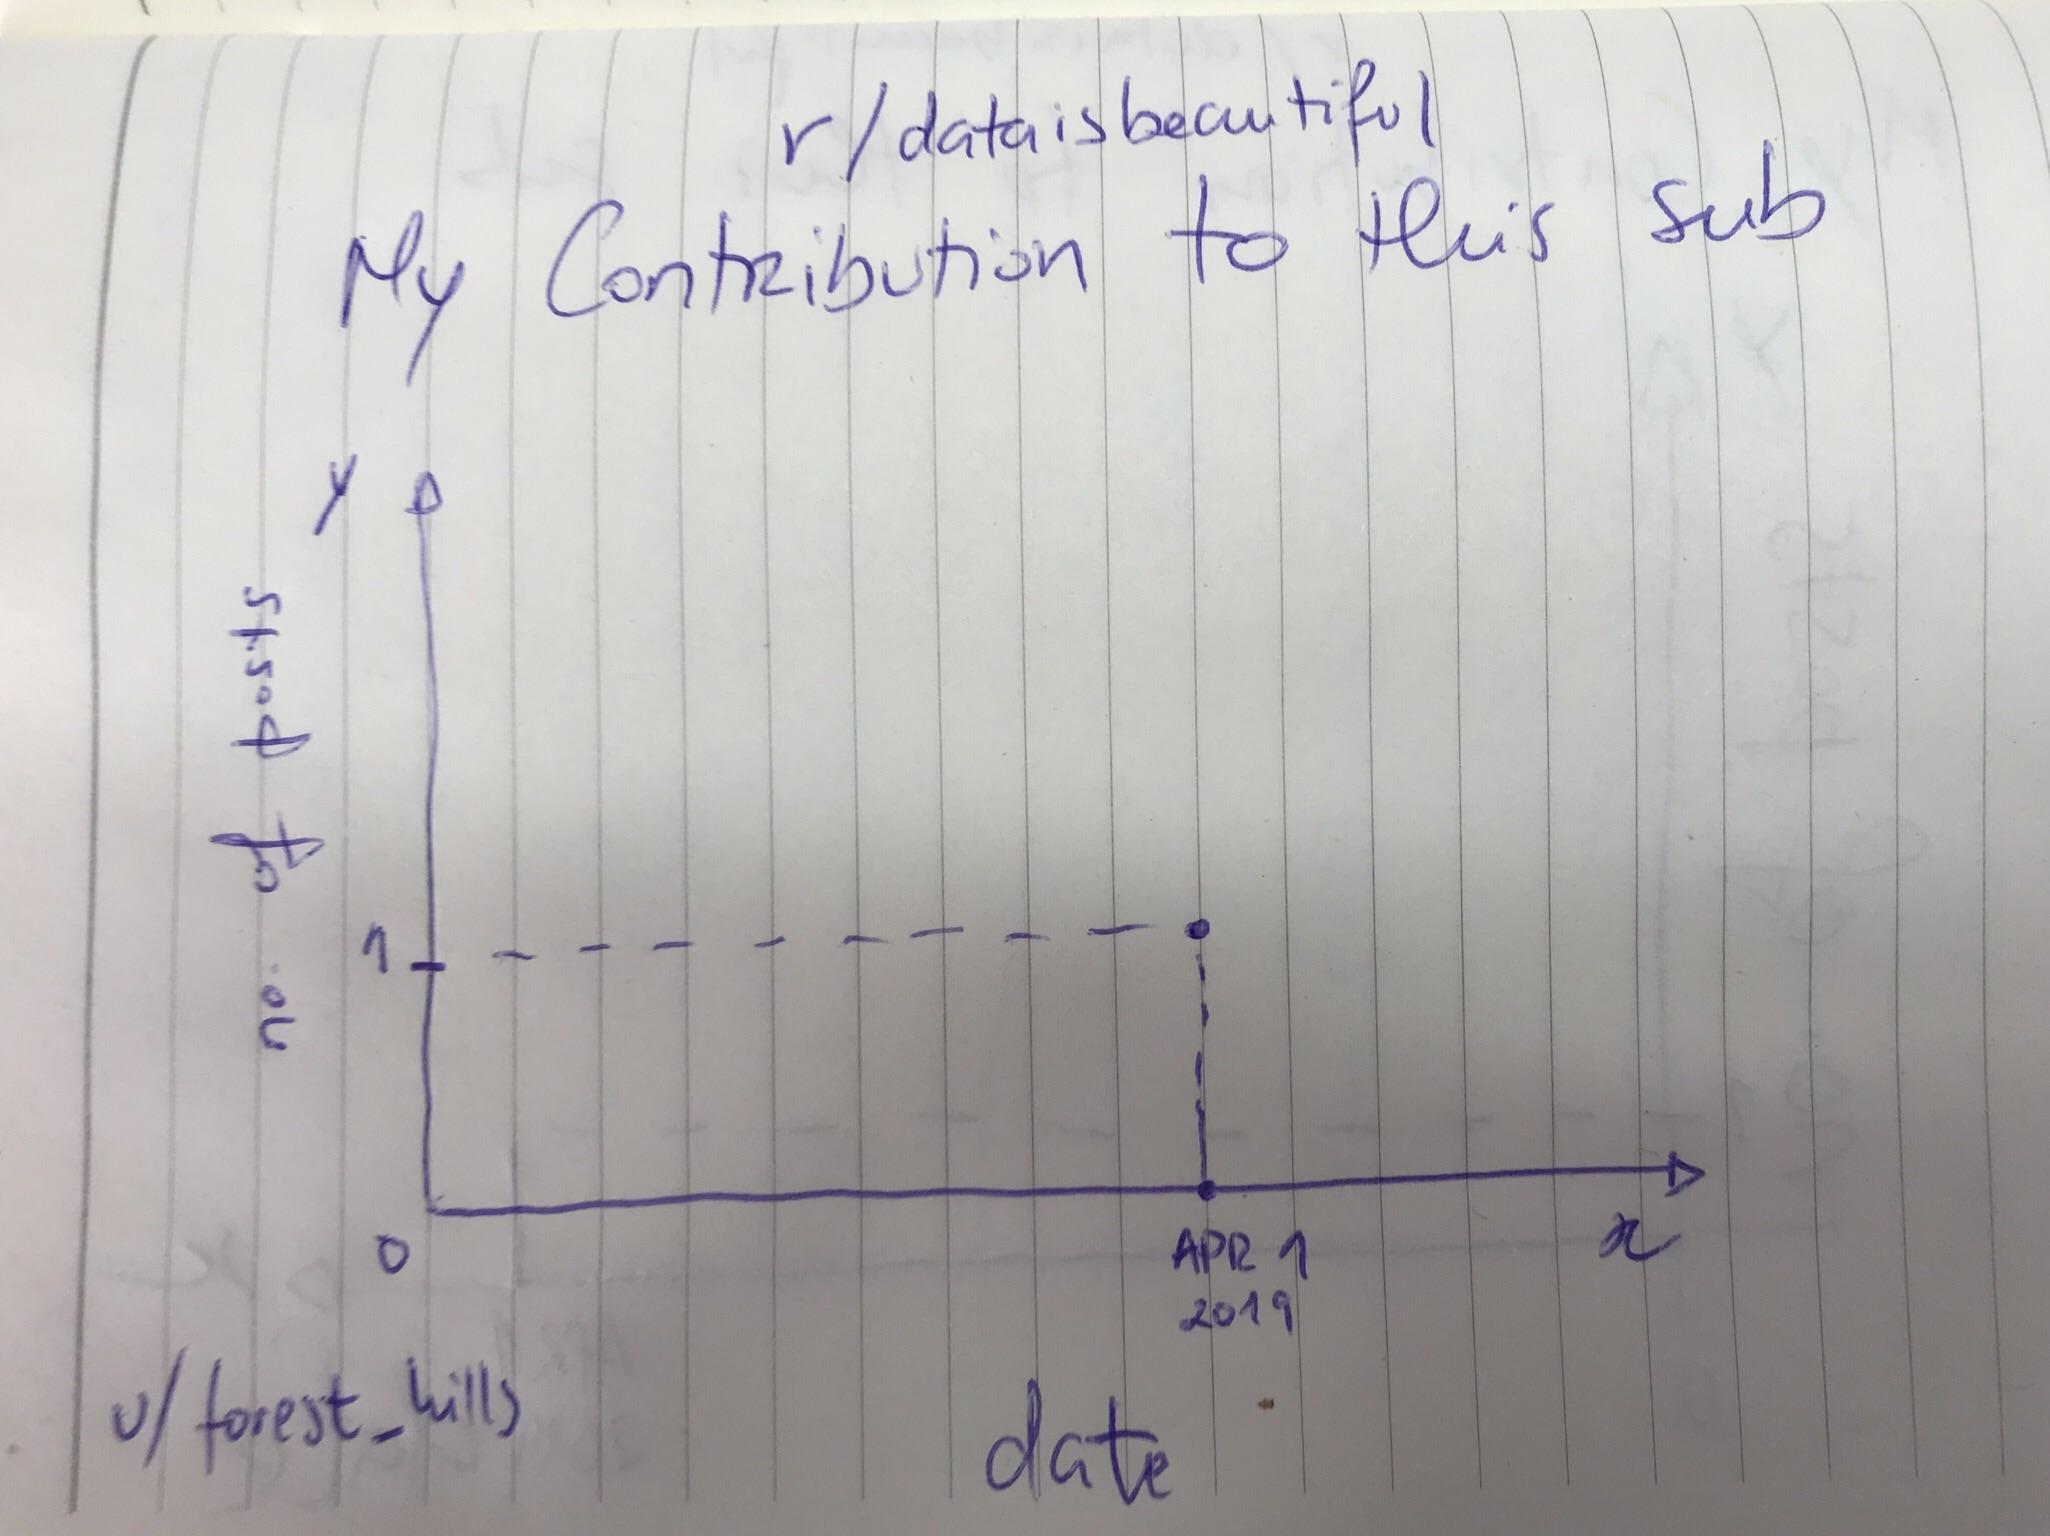 r/dataisbeautiful
My Contribution to this sub
y
no. of posts
1
0
APR 1
2019
x
u/forest_hills
date